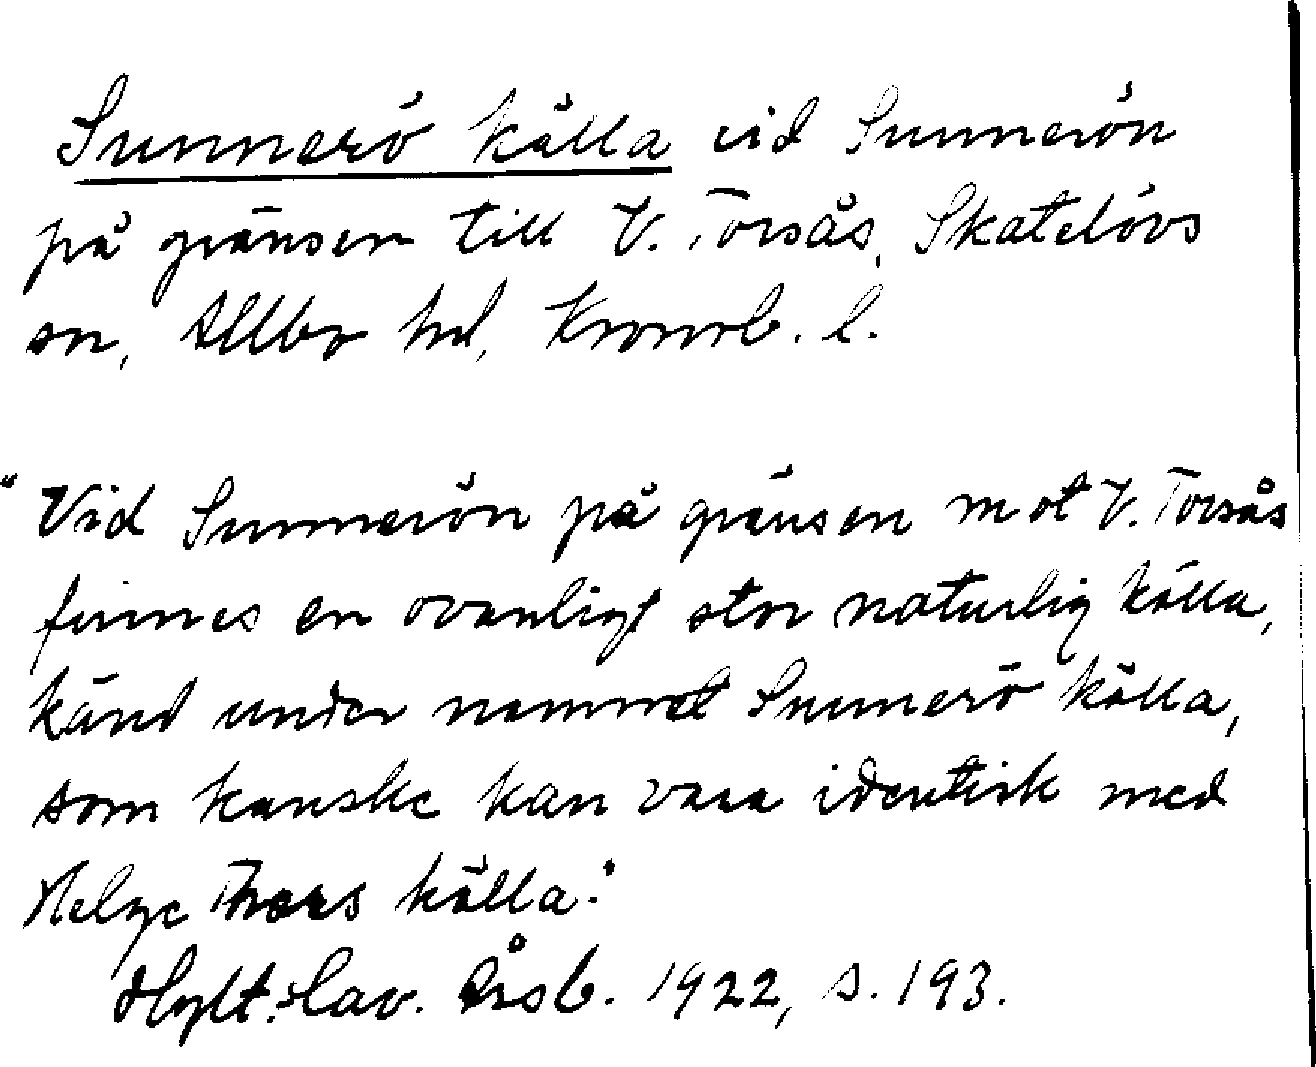 Sunnerö källa vid Sunnerön
på gränsen till V. Torsås, Skatelövs
sn, Allbo hd, Kronob. l.
"Vid Sunnerön på gränsen mot V. Torsås
finnes en ovanligt stor naturlig källa,
känd under namnet Sunnerö källa,
som kanske kan vara identisk med
Helge Thors källa."
Hylt.-Cav. Årsb. 1922, s. 193.